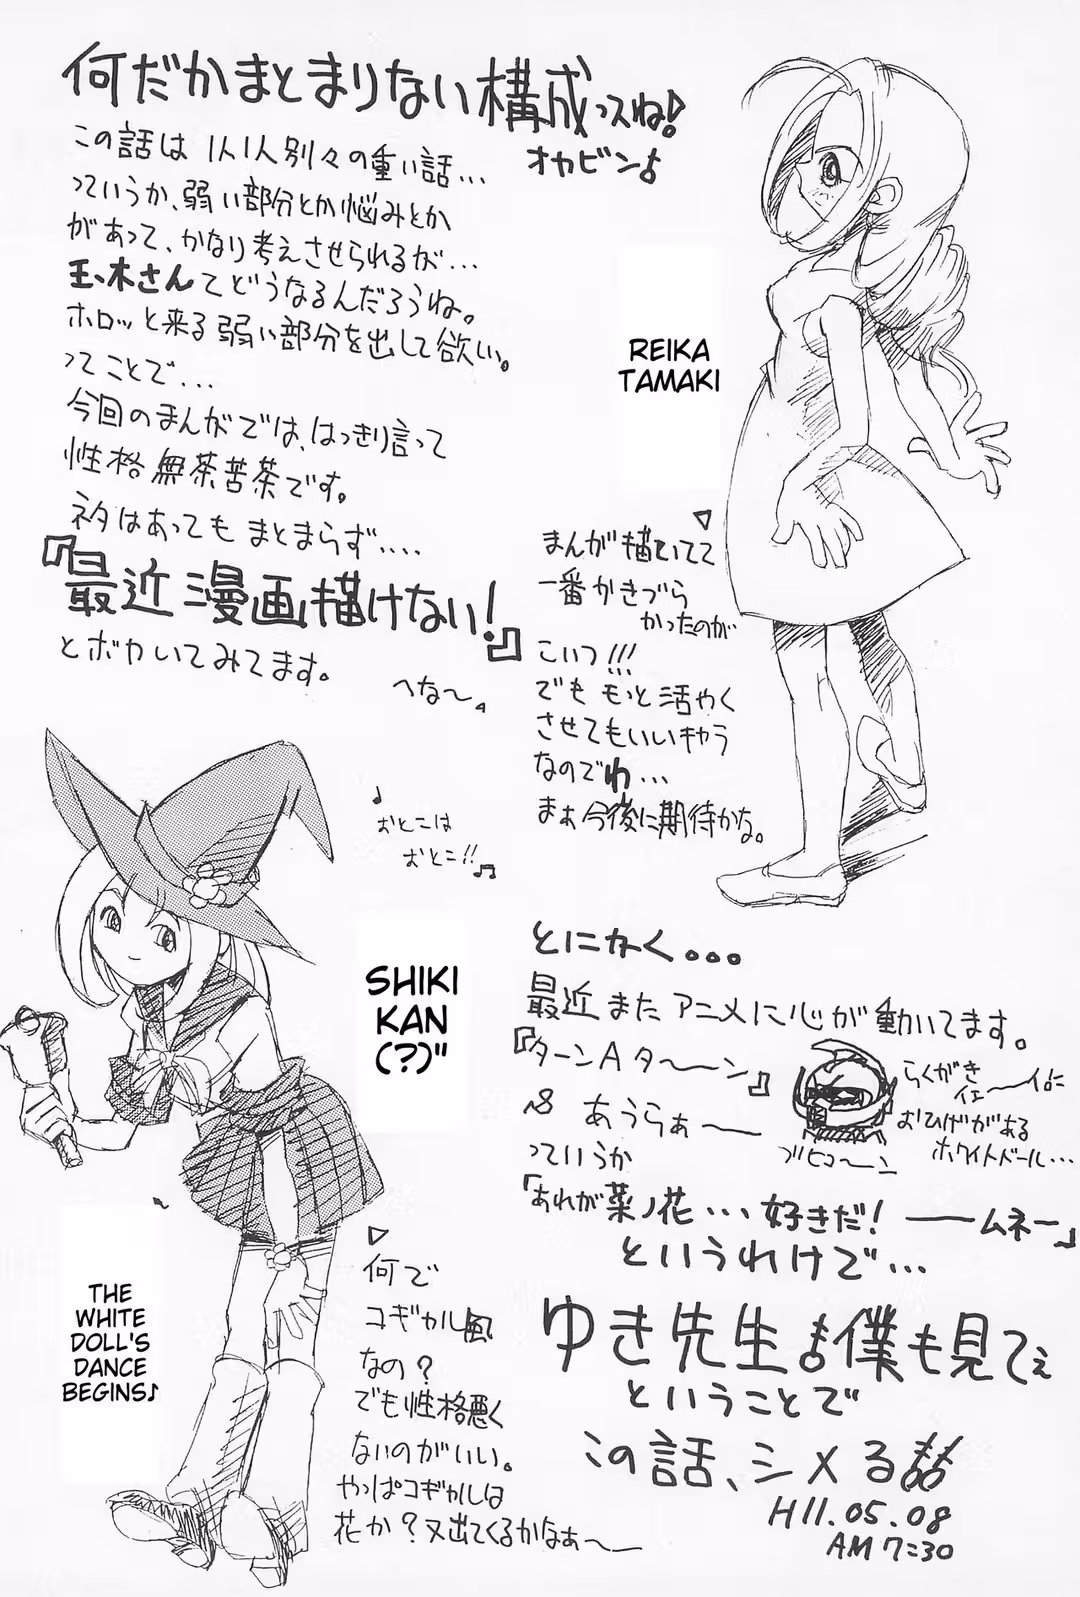 何だかまとまりない構成っスね!
オカビン♪
この話は1人1人別々の重い話…
っていうか、弱い部分とか悩みとか
があって、かなり考えさせられるが…
玉木さんてどうなるんだろうね。
ホロッと来る弱い部分を出して欲しい。
ってことで…
今回のまんがでは、はっきり言って
性格無茶苦茶です。
ネタはあってもまとまらず….
『最近漫画描けない!』
とボカいてみてます。
へな〜。
REIKA
TAMAKI
まんが描いてて
一番かきづら
かったのが
こいつ!!!
でももっと活やく
させてもいいキャラ
なのでわ…
まぁ今後に期待かな。
♪
おとこは
おとこ!!♫
SHIKI
KAN
(?)"
THE
WHITE
DOLL'S
DANCE
BEGINS♪
何で
コギャル風
なの?
でも性格悪く
ないのがいい。
やっぱコギャルは
花か?又出てくるかなぁ〜
とにかく...
最近またアニメに心が動いてます。
『ターンA ターーン』
あうらぁー
っていうか
らくがき
おひげがある
ホワイトドール…
ブヒューン
「あれが菜ノ花…好きだ! ームネー」
というわけで…
ゆき先生♪僕も見てぇ
ということで
この話、シメる
H11.05.08
AM 7:30